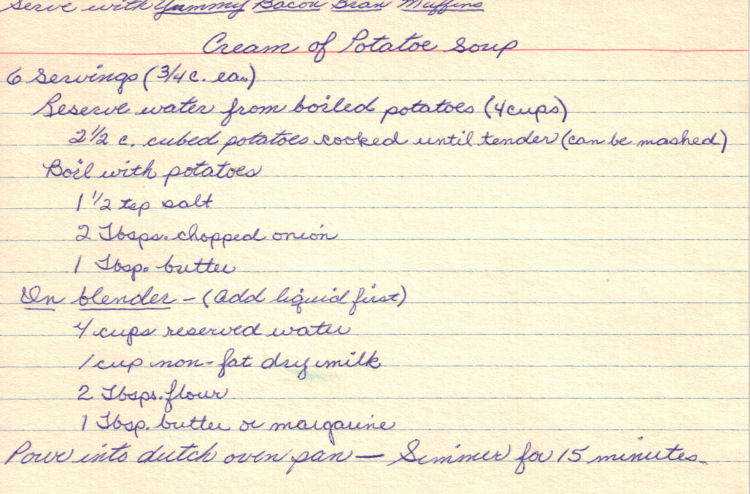 Serve with Yummy Bacon Bran Muffins
Cream of Potatoe Soup
6 Servings (3/4 c. ea.)
Reserve water from boiled potatoes (4 cups)
2 1/2 c. cubed potatoes cooked until tender (can be mashed)
Boil with potatoes
1 1/2 tsp salt
2 Tbsps. chopped onion
1 Tbsp. butter
In blender - (add liquid first)
4 cups reserved water
1 cup non-fat dry milk
2 Tbsps. flour
1 Tbsp. butter or margarine
Pour into dutch oven pan — Simmer for 15 minutes.